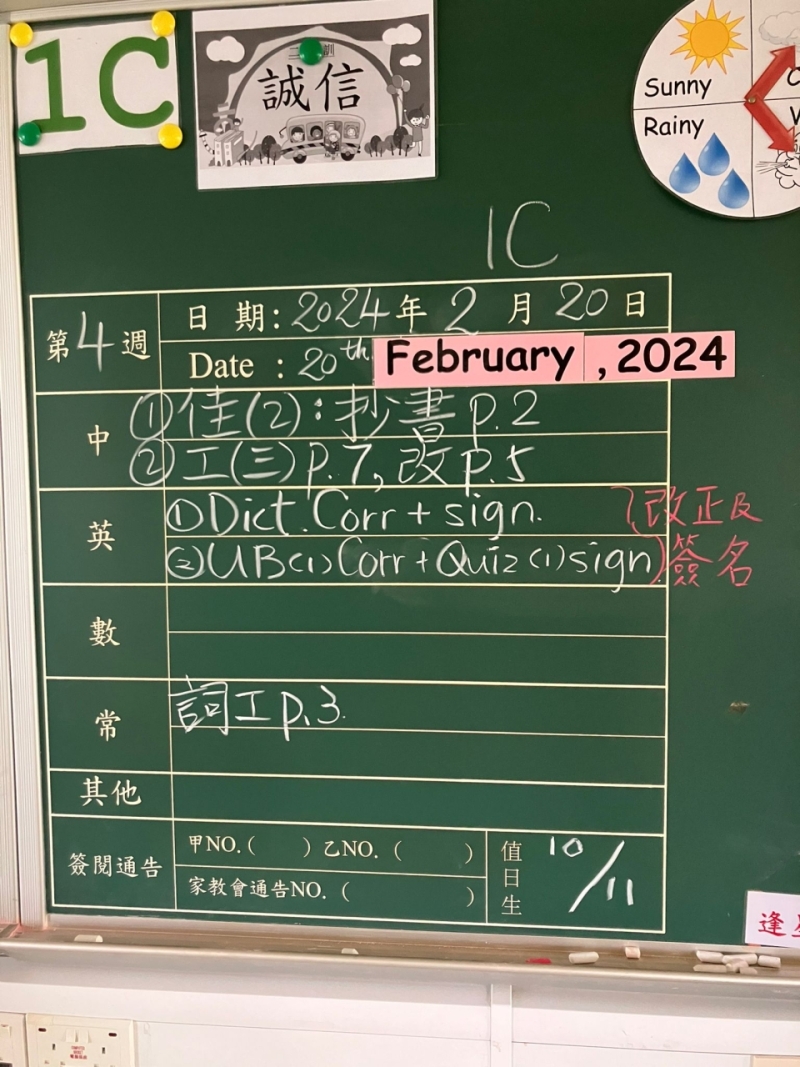 1C
誠信
Sunny
Rainy
1C
第4週
日 期：2024年2月20日
Date : 20th February , 2024
中
①佳(2)：抄書 p.2
②工(三)p.7, 改p.5
英
①Dict. Corr + sign.
②UB(1) Corr + Quiz (1) sign
改正及
簽名
數
常
詞工p.3.
其他
簽閱通告
甲NO.( ) 乙NO. ( )
家教會通告NO. ( )
值日生
10/11
逢